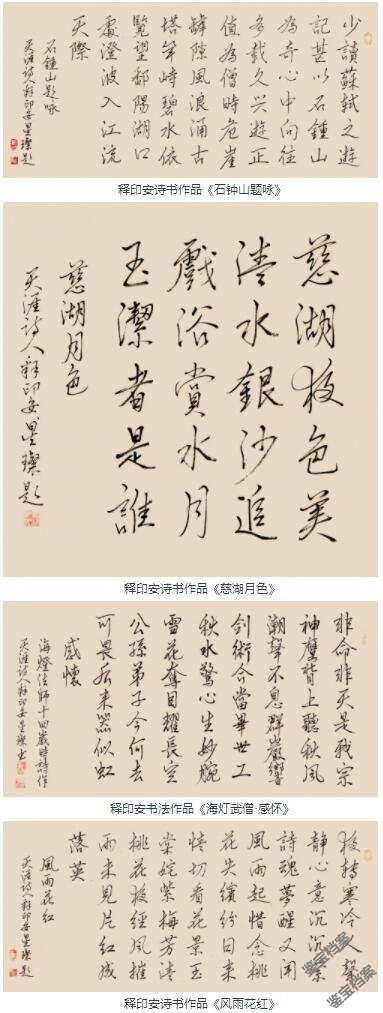 少讀蘇軾之遊
記甚以石鍾山
為奇心中向往
多載久興遊正
值為僧時危崖
罅隙風浪涌古
塔峙碧水依
覽望鄱陽湖口
處澄波入江流
天際
石鍾山題咏
天涯詩人釋印安星燦題
释印安诗书作品《石钟山题咏》
慈湖夜色美
清水銀沙追
戲浴賞水月
玉潔者是誰
慈湖月色
天涯詩人釋印安星燦題
释印安诗书作品《慈湖月色》
非命非天是我宗
神鷹背上聽秋風
潮聲不息群巖響
劍術今當畢世工
秋水驚心生妙腕
雪花奪目耀長空
公孫弟子今何去
可畏后来器似虹
感懷
海燈法師十四歲時詩作
天涯詩人釋印安星燦書
释印安书法作品《海灯武僧·感怀》
夜轉寒冷人聲
静心意沉沉繫
詩魂夢醒又闻
風雨起惜念桃
花失繽紛日来
情切看花景玉
棠姹紫梅芳
桃花夜經風摧
雨来見片紅成
落英
風雨花紅
天涯詩人釋印安星燦題
释印安诗书作品《风雨花红》
鉴宝档案
鉴宝档案